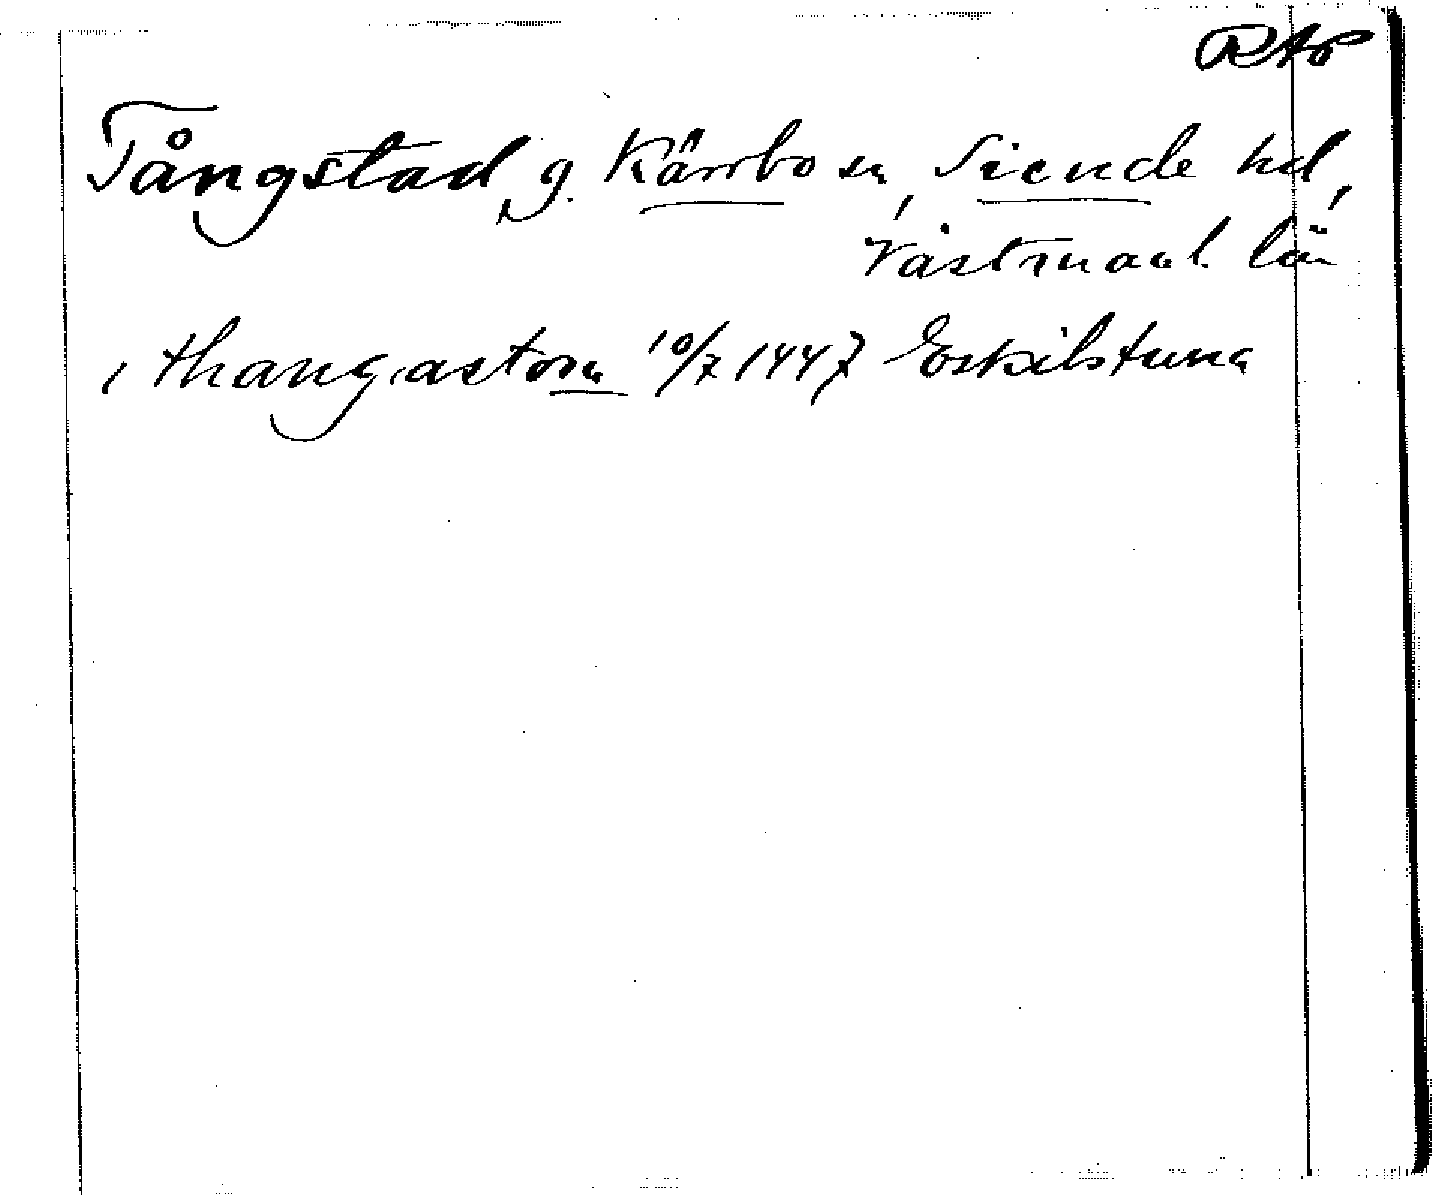 RAp
Tångstad, g. Kärrbo sn, Siende hd,
Västmanl. län
i thangastom 10/7 1447 Eskilstuna